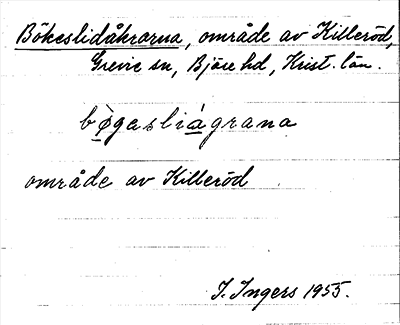 Bökeslidåkrarna, område av Killeröd,
Grevie sn, Bjäre hd, Krist. län.
bø̀gasliágrana
område av Killeröd
I. Ingers 1955.